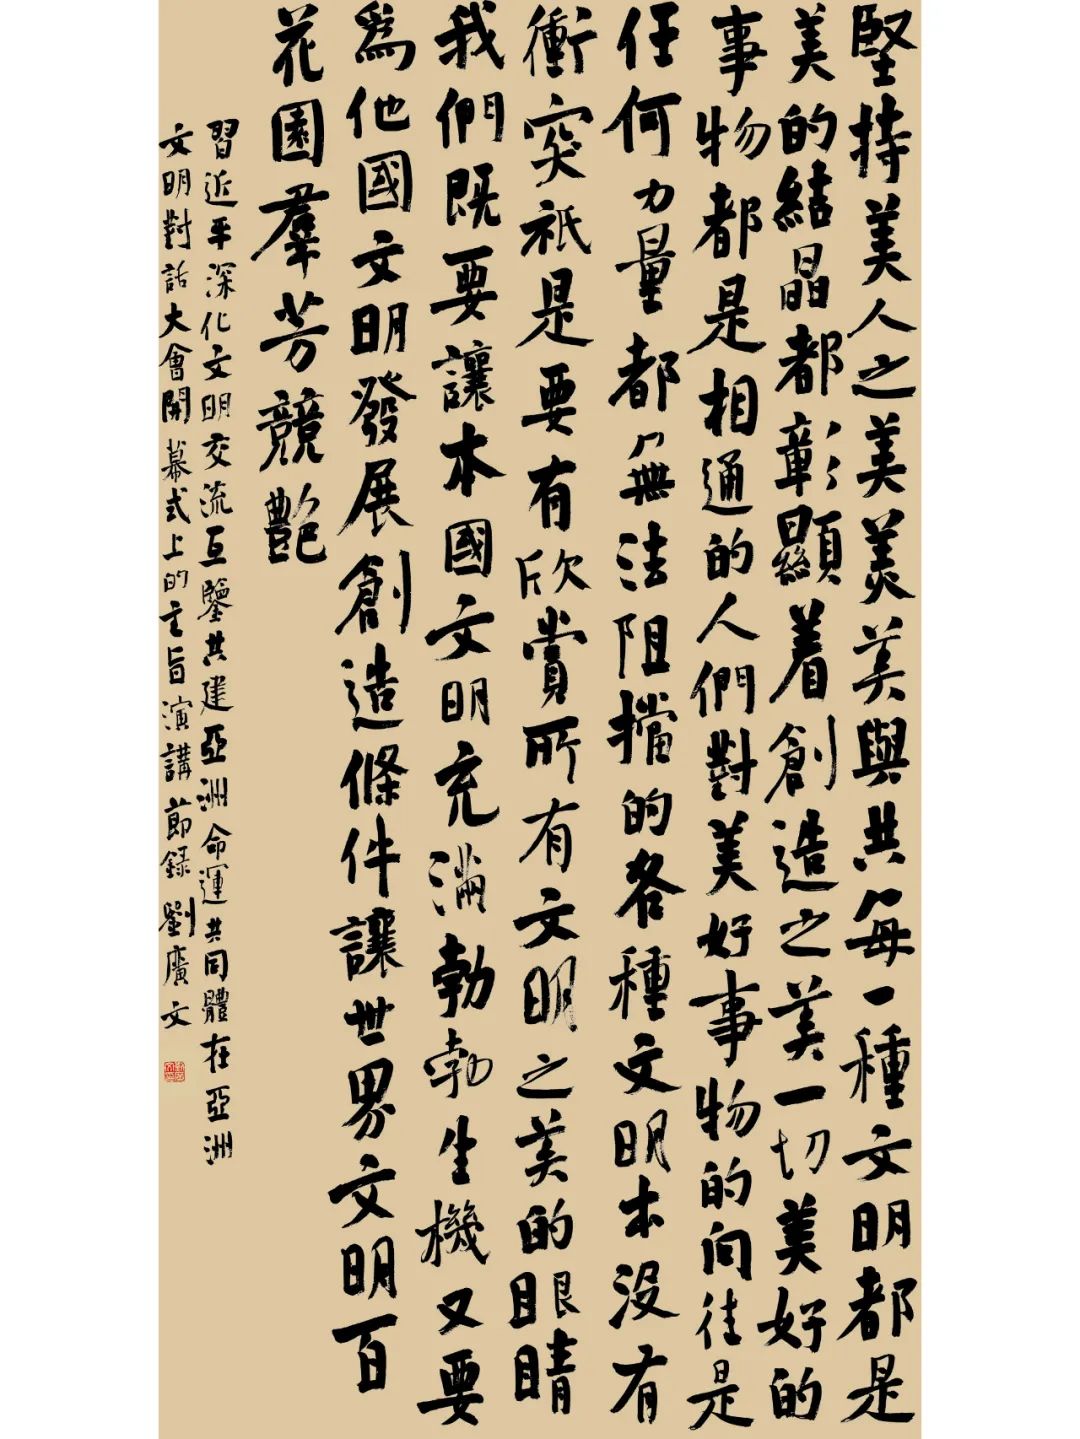 堅持美人之美美美與共每一種文明都是
美的結晶都彰顯着創造之美一切美好的
事物都是相通的人們對美好事物的向往是
任何力量都無法阻擋的各種文明本没有
衝突祇是要有欣賞所有文明之美的眼睛
我們既要讓本國文明充滿勃勃生機又要
爲他國文明發展創造條件讓世界文明百
花園羣芳競艷
習近平深化文明交流互鑒共建亞洲命運共同體在亞洲
文明對話大會開幕式上的主旨演講節録劉廣文